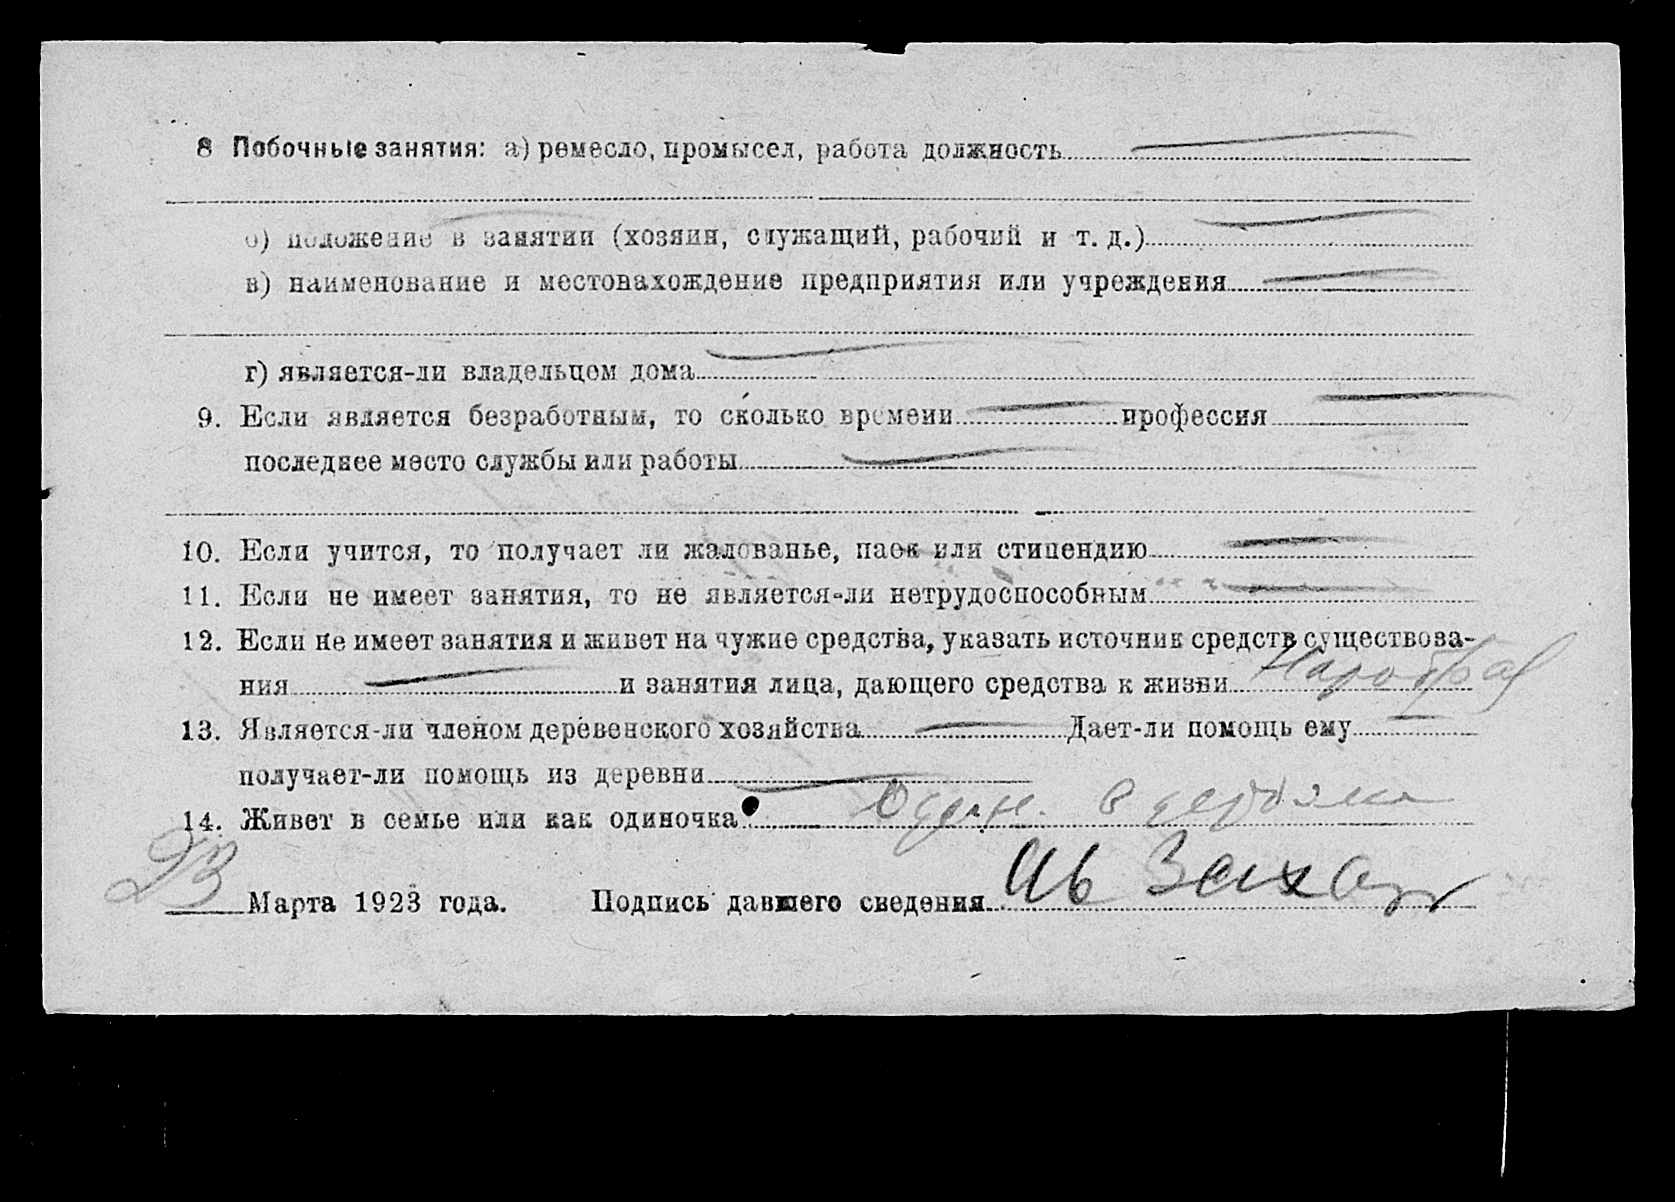 8 Побочные занятия: а) ремесло, промысел, работа должность
б) положение в занятии (хозяин, служащий, рабочий и т. д.)
в) наименование и местонахождение предприятия или учреждения
г) является-ли владельцем дома
9. Если является безработным, то сколько времени профессия
последнее место службы или работы
10. Если учится, то получает ли жалованье, паек или стипендию
11. Если не имеет занятия, то не является-ли нетрудоспособным
12. Если не имеет занятия и живет на чужие средства, указать источник средств существова-
ния и занятия лица, дающего средства к жизни Наробраз
13. Является-ли членом деревенского хозяйства Дает-ли помощь ему
получает-ли помощь из деревни
14. Живет в семье или как одиночка
23 Марта 1923 года. Подпись давшего сведения